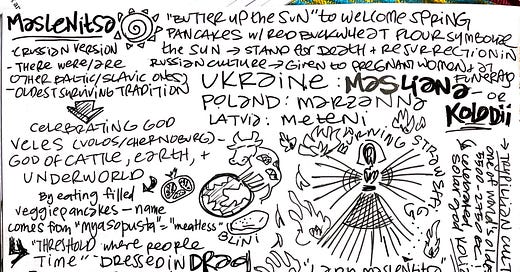 Maslenitsa
(RUSSIAN VERSION
- THERE WERE/ARE
OTHER BALTIC/SLAVIC ONES)
- OLDEST SURVIVING TRADITION
"BUTTER UP THE SUN" to WELCOME SPRING
PANCAKES W/ RED BUCKWHEAT FLOUR SYMBOLIZE
the SUN → STAND for DEATH + RESURRECTION IN
RUSSIAN CULTURE → GIVEN TO PREGNANT WOMEN + at
FUNERALS
UKRAINE: MASLIANA
- OR
KOLODII
POLAND: MARZANNA
LATVIA: METENI
CELEBRATING GOD
VELES (VOLOS/CHERNOBURG) -
GOD OF CATTLE, EARTH, +
UNDERWORLD
By eating filled
veggie pancakes - name
comes from "myasopusta" = "meatless"
"THRESHOLD" where people
TIME" DRESSED IN DRAG
BLINI
BURNING STRAW EFFIGY
"LADY MASLENITSA"
→ TRYPILLIAN CULTURE
one of world's oldest
solar god